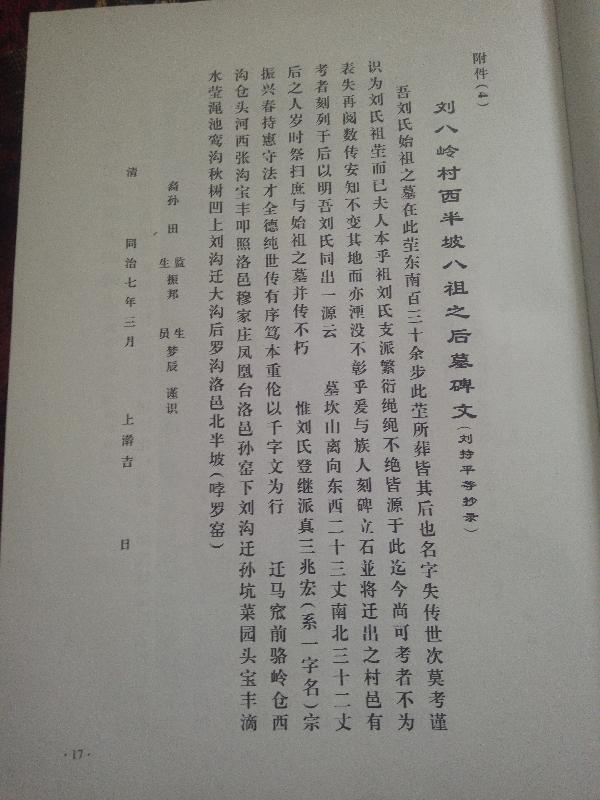 附件（4）
刘八岭村西半坡八祖之后墓碑文（刘持平等抄录）
吾刘氏始祖之墓在此茔东南百三十余步此茔所葬皆其后也名字失传世次莫考谨
识为刘氏祖茔而已夫人本乎祖刘氏支派繁衍绳绳不绝皆源于此迄今尚可考者不为
表失再阅数传安知不变其地而亦湮没不彰乎爰与族人刻碑立石並将迁出之村邑有
考者刻列于后以明吾刘氏同出一源云 墓坎山离向东西二十三丈南北三十二丈
后之人岁时祭扫庶与始祖之墓并传不朽 惟刘氏登继派真三兆宏（系一字名）宗
振兴春持惠守法才全德纯世传有序笃本重伦以千字文为行 迁马窊前骆岭仓西
沟仓头河西张沟宝丰叩照洛邑穆家庄凤凰台洛邑孙窑下刘沟迁孙坑菜园头宝丰滴
水莹渑池鸾沟秋树凹上刘沟迁大沟后罗沟洛邑北半坡（哱罗窑）
裔孙 田 监生 振邦 生员 梦辰 谨识
清 同治七年三月 上澣吉 日
·17·